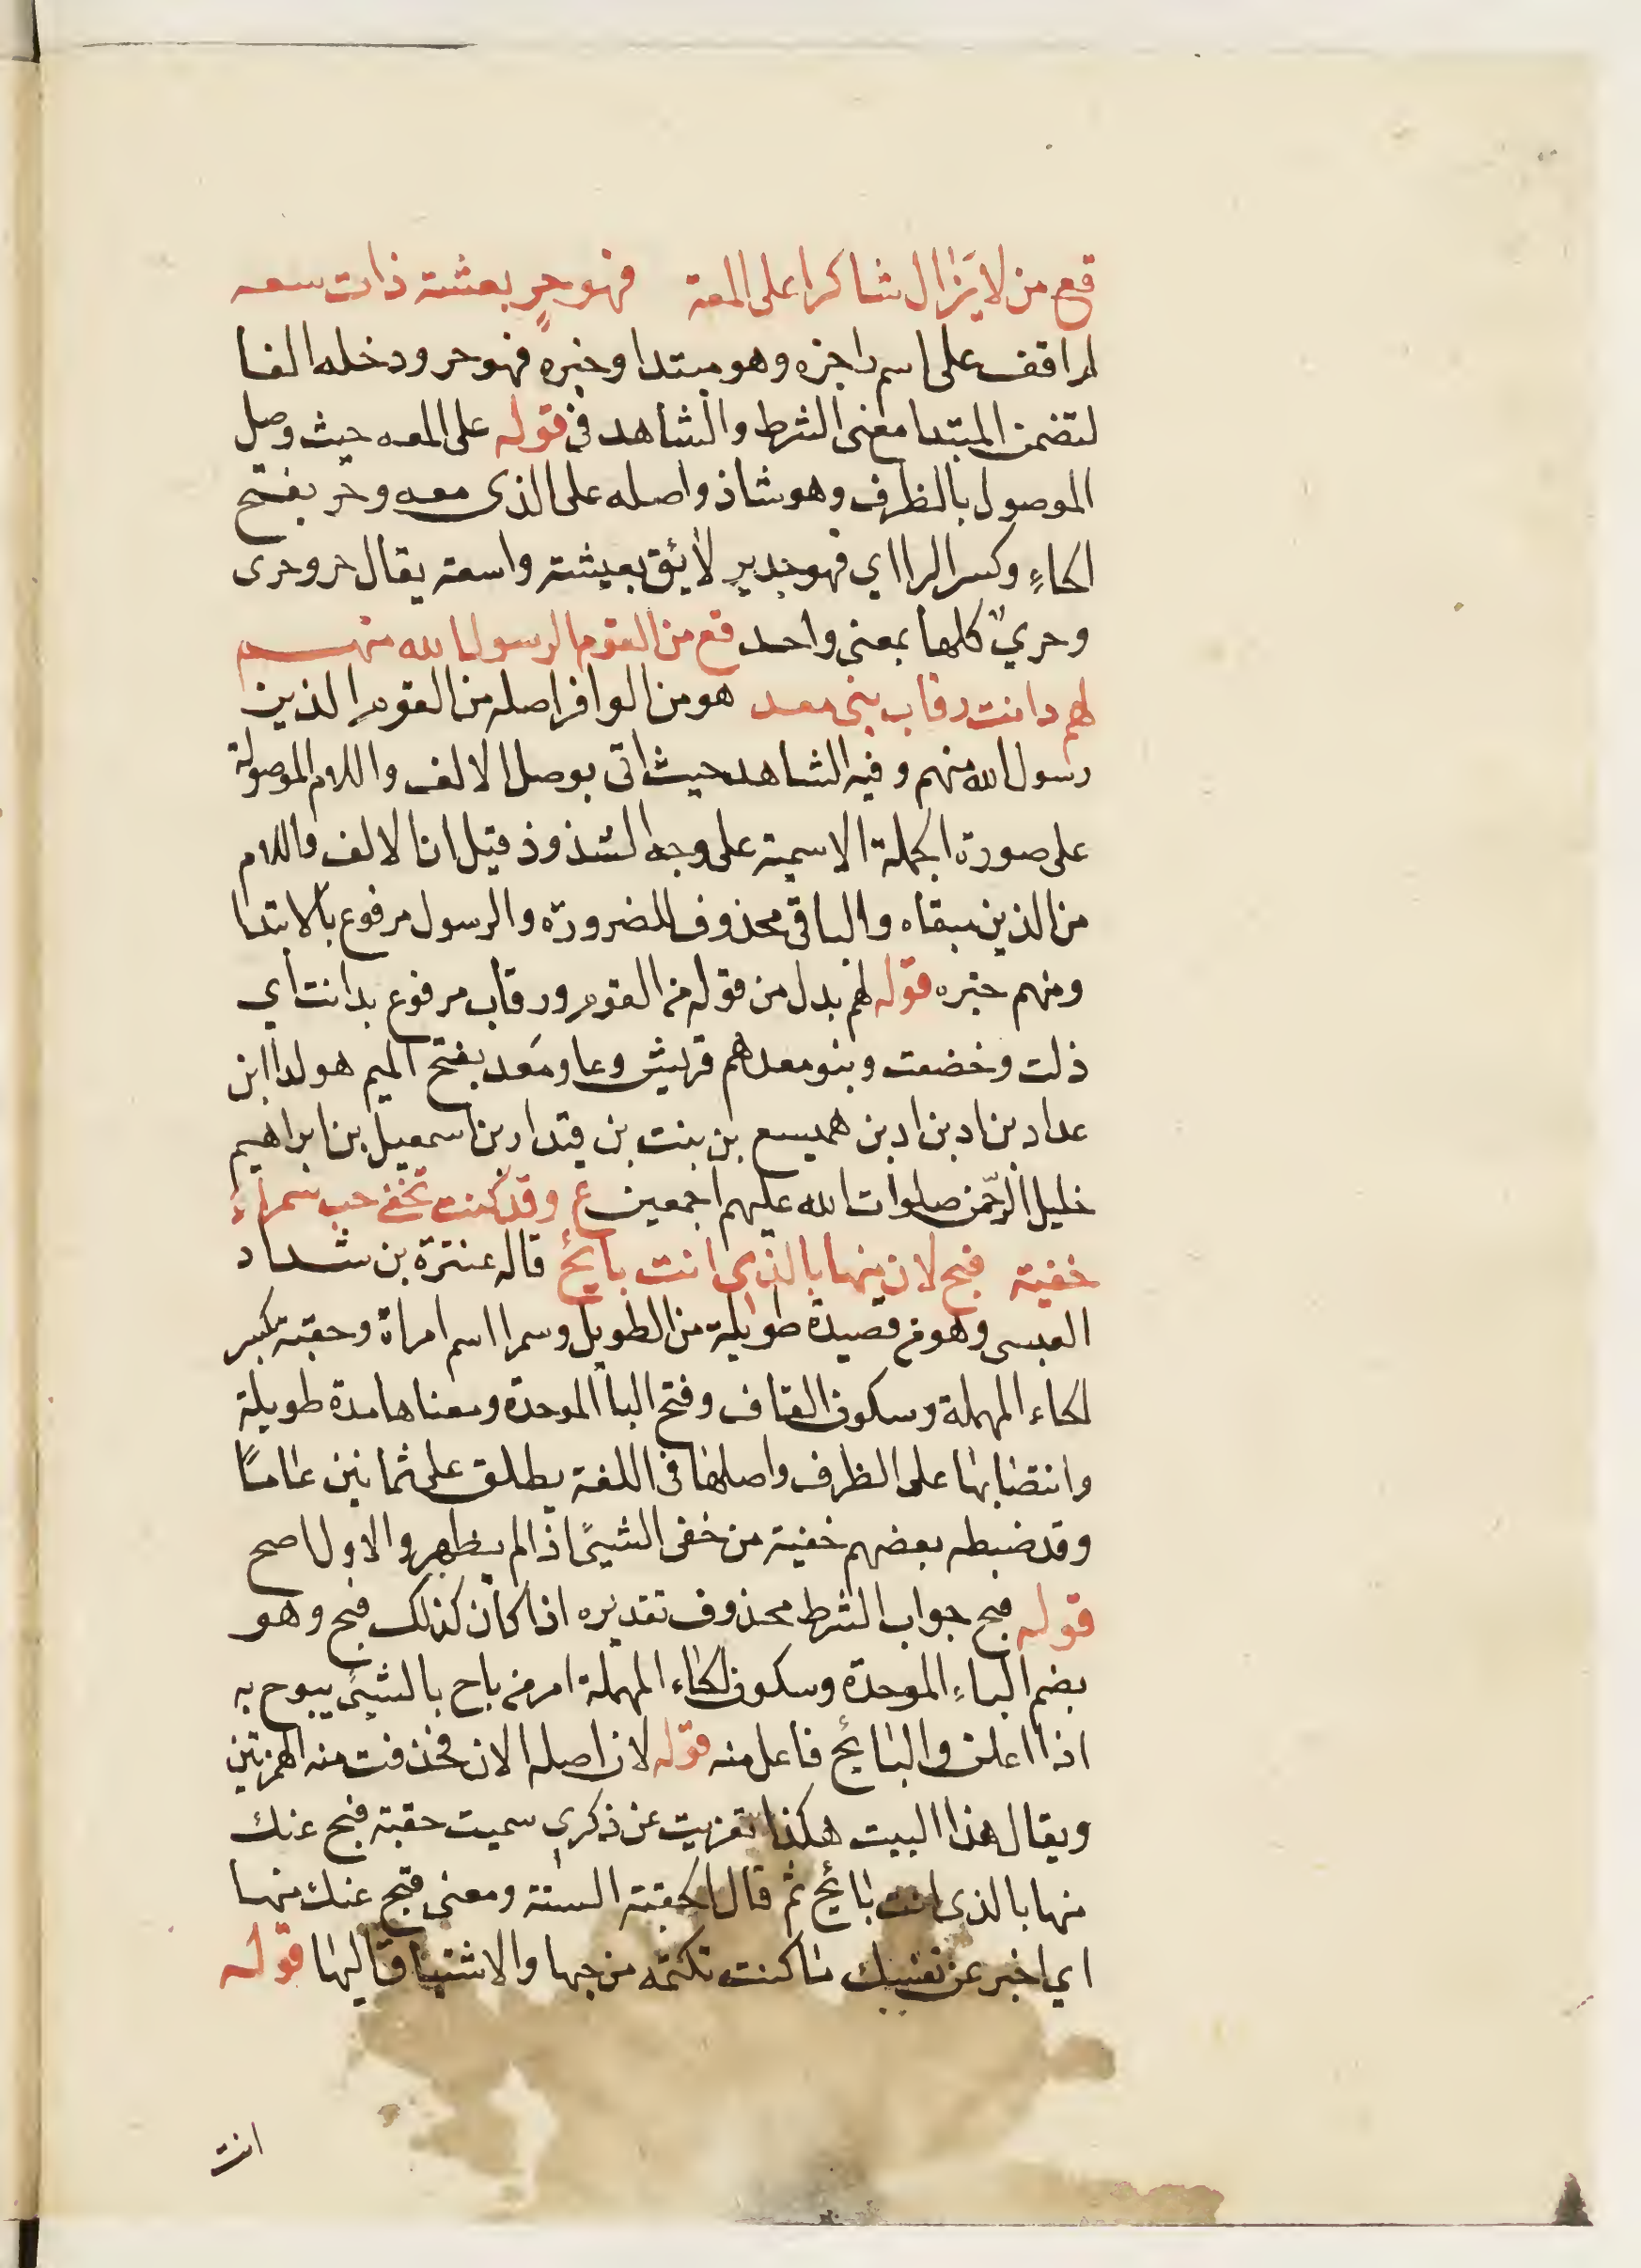 قع من لا يزال شاكرا على المعه فهو حرٍ بعشة ذات سعه
لم اقف على اسم راجزه وهو مبتدا وخبره فهو حر ودخله الفا
لتضمن المبتدا معنى الشرط والشاهد في قوله على المعه حيث وصل
الموصول بالظرف وهو شاذ واصله على الذى معه وحر بفتح
الحاءِ وكسر الرا اي فهو جدير لائق بعيشة واسعة يقال حر وحرى
وحريّ كلها بمعنى واحد قع من القوم الرسول الله منهم
لهم دانت رقاب بنى معد هو من الوافر اصله من القوم الذين
رسول الله منهم وفيه الشاهد حيث اتى بوصل الالف واللام الموصولة
على صورة الجملة الاسمية على وجه الشذوذ قيل ان الالف واللام
من الذين مبقاه والباقى محذوف للضرورة والرسول مرفوع بالابتدا
ومنهم خبره قوله لهم بدل من قوله من القوم ورقاب مرفوع بدانت اي
ذلت وخضعت وبنو معد هم قريش وعا ومَعد بفتح الميم هو لدا ابن
عداد بن اد بن ادبن هميسع بن بنت بن قيدار بن اسمعيل بن ابراهيم
خليل الرّحمن صلوات الله عليهم اجمعين ع وقد كنت تخفى حب سمراء
خفية فبح لان منها بالذى انت بائح قاله عنترة بن شداد
العبسى وهو من قصيدة طويلة من الطويل وسمرا اسم امراة وحقبة بكسر
لحاء المهملة وسكون القاف وفتح البا الموحدة ومعناها مدة طويلة
وانتصابها على الظرف واصلها فى اللغة يطلق على ثمانين عامًا
وقد ضبطه بعضهم خفية من خفى الشيئ اذا لم يظهر والاول اصح
قوله فبح جواب الشرط محذوف تقديره اذا كان كذلك فبح وهو
بضم الباءِ الموحدة وسكون لحاء المهملة امر من باح بالشيئ يبوح به
اذا اعلن والبائح فاعل منه قوله لان اصله الان فحذفت منه الهمزتين
ويقال هذا البيت هكذا تعزيت عن ذكري سميت حقبة فبح عنك
منها بالذى انت بائح ثم قال الحقبة السنة ومعنى فبح عنك منها
اي اخبر عن نفسك ما كنت تكتمه من حبها والاشتياق اليها قوله
انت